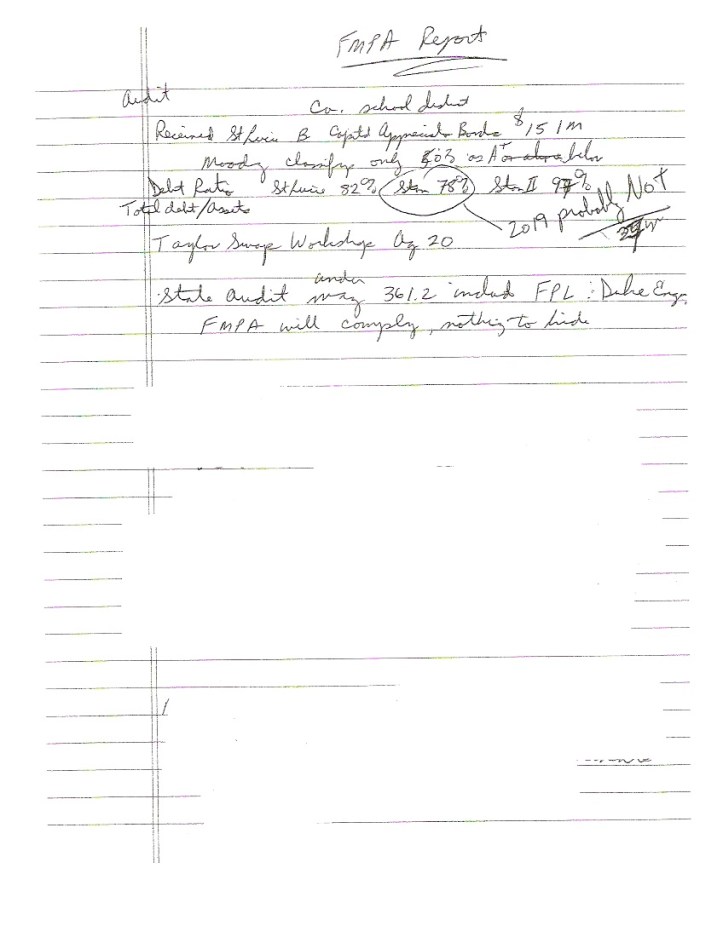 FMPA Report
Audit
Co. school district
Received St Lucie B Capt'd Appreciat Bonds $151M
Moody classify only 60% as A or above below
Debt Ratio St Lucie 82% Stan 78% Stan II 97%
Total debt/assets
2019 probably Not
Taylor Swap Workshop Ag 20
under
State audit may 361.2 includ FPL : Duke Engy
FMPA will comply, nothing to hide